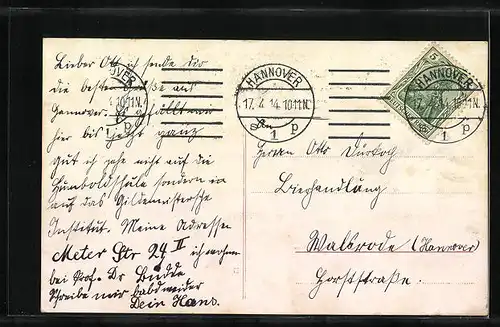 Lieber Ott ich sende dir
die besten Grüße aus
Hannover. Es gefällt mir
hier bis jetzt ganz
gut ich gehe nicht auf die
Humboldschule sondern
auf das Gildemeistersche
Institut. Meine Adressen
Meter Str 24 II ich wohne
bei Prof. Dr Budde
Schreibe mir bald wieder
Dein Hans.
HANNOVER
17.4.14.10-11N.
1 p
HANNOVER
17.4.14.10-11N.
1 p
5
Herrn Otto
Bierhandlung
Walsrode (Hannover)
Horststraße.